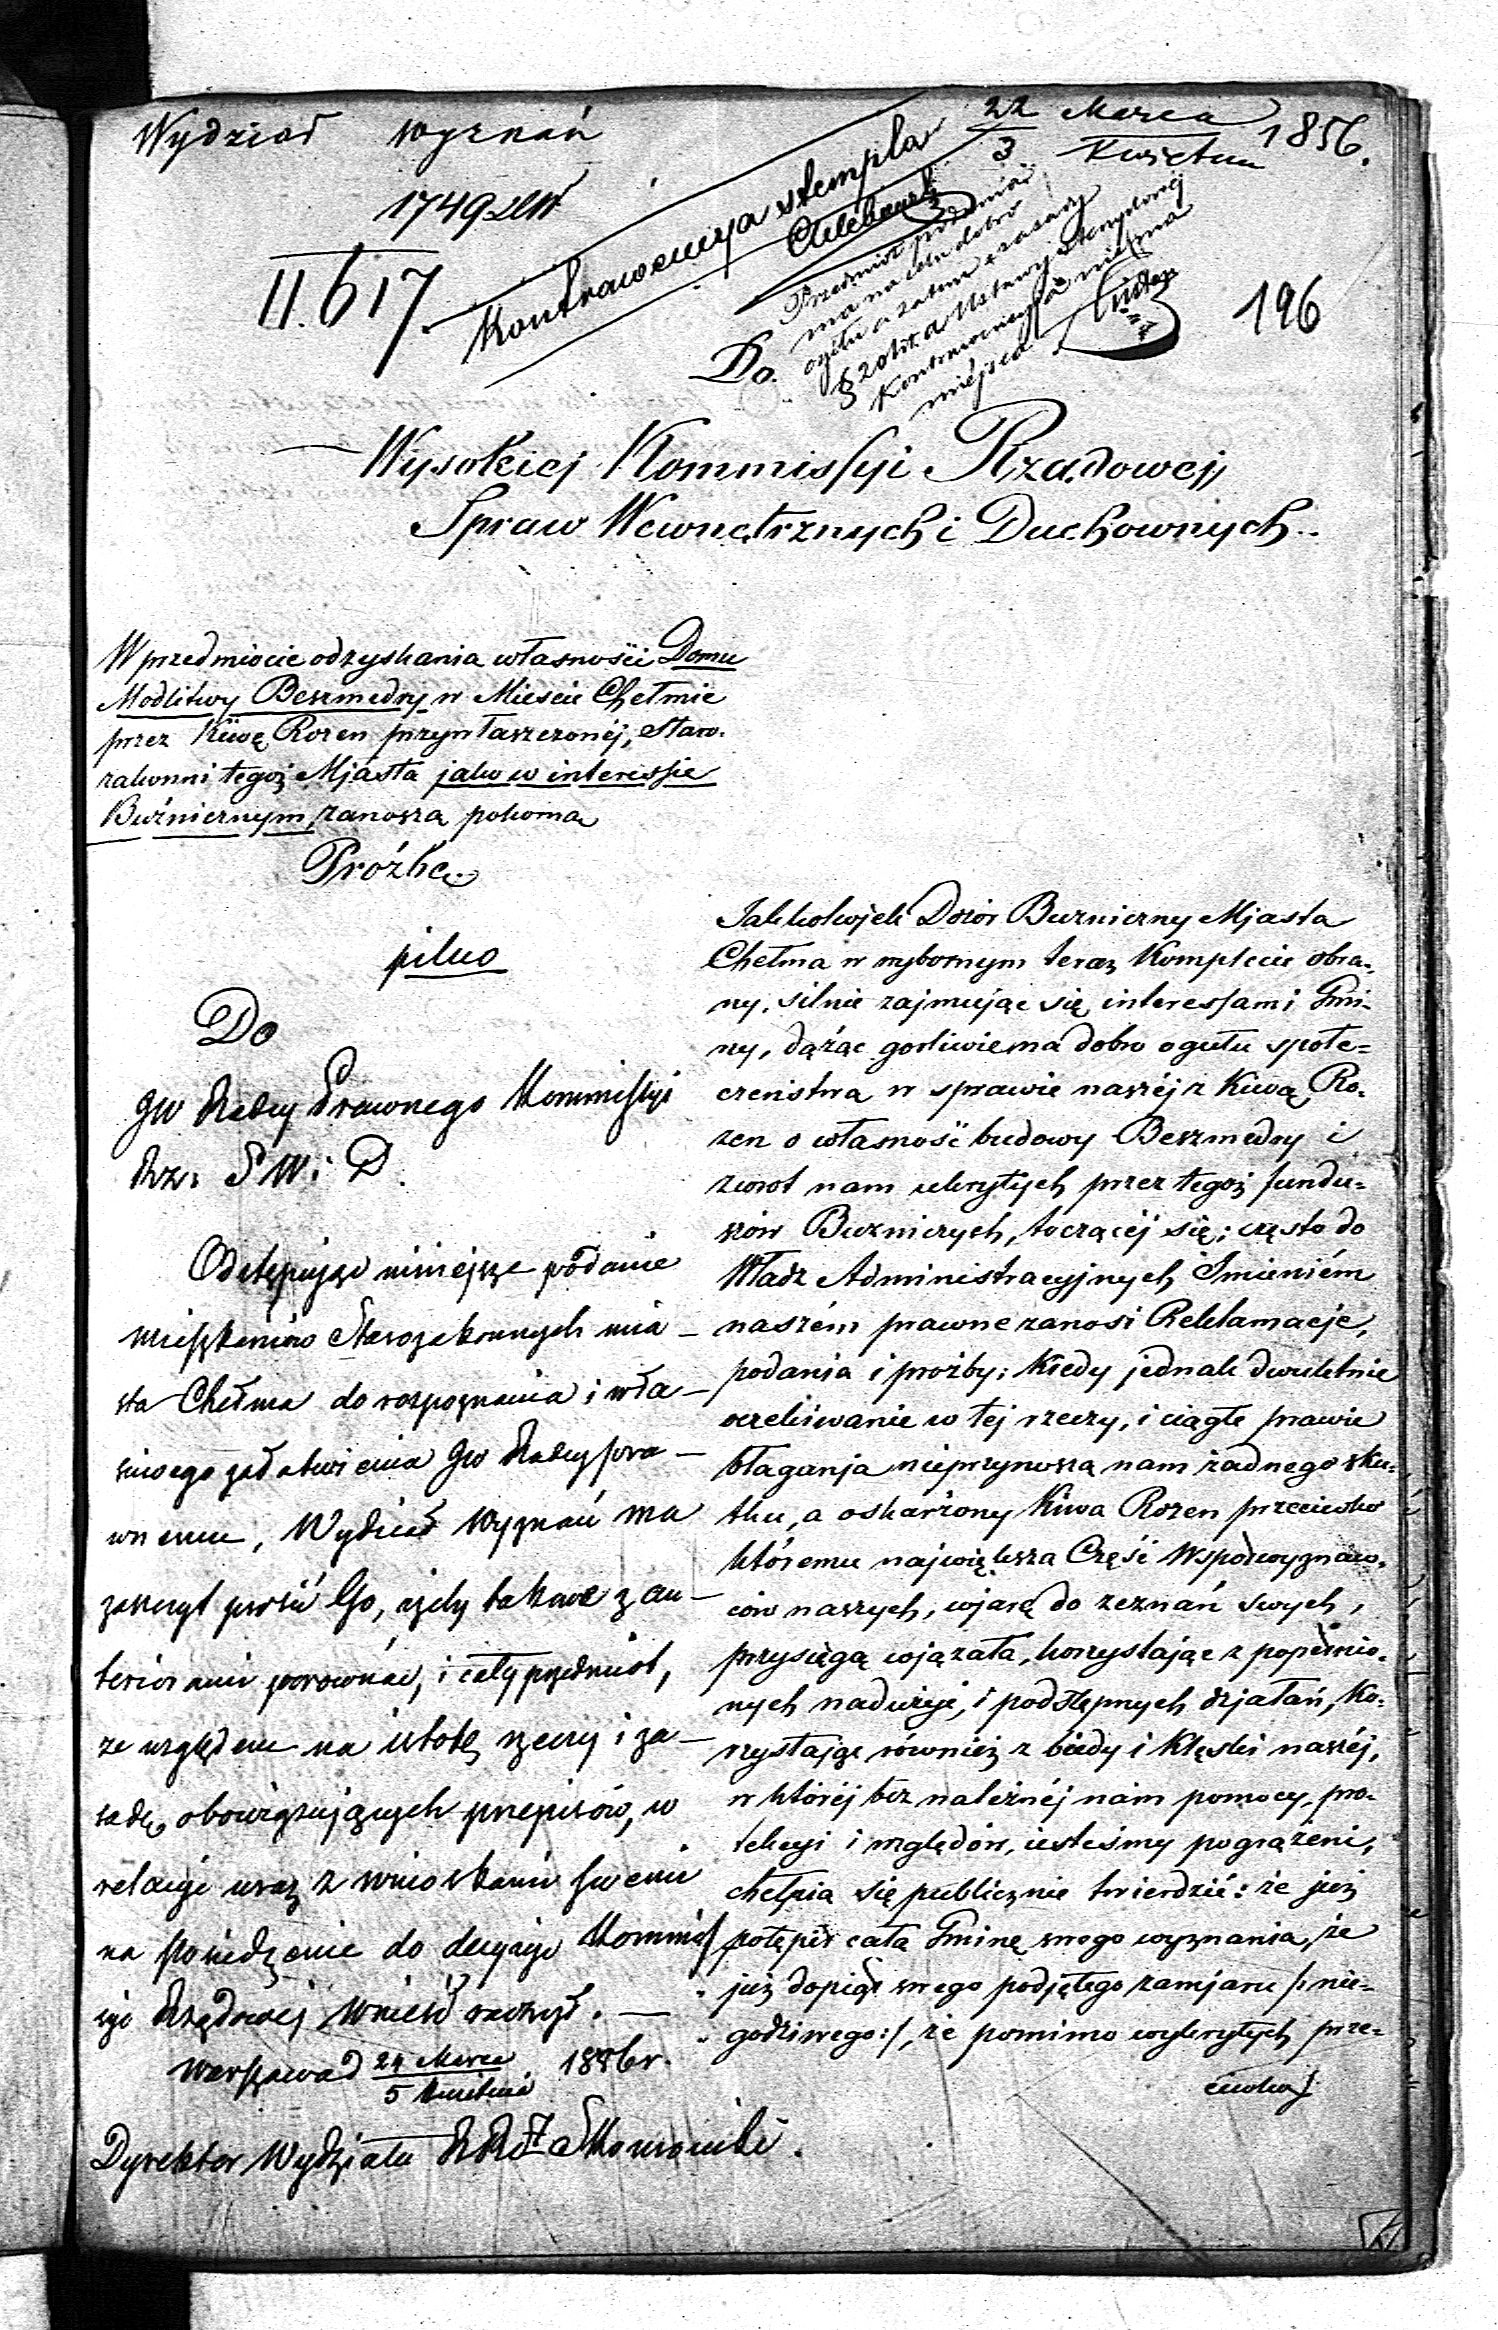 Wydział wyznań
22 Marca
3 Kwietnia 1856.
1749
II. 617.
Kontrawencyja stempla
Przedmiot podania
ma na celu dobro
ogółu a zatem z zasady
§ 20 Ustawy stemplowej
Kontrawencyja nie ma
miejsca
196
Do
Wysokiej Kommissyi Rządowej
Spraw Wewnętrznych i Duchownych..
W przedmiocie odzyskania własności Domu
Modlitwy Beszmedry w Mieście Chełmie
przez Kiwę Rozen przywłaszczonéj, Staro-
zakonni tegoż Mjasta jako w interessie
Buźnicznym, zanoszą pokorną
Proźbę.
pilno
Do
JW Radcy Prawnego Kommissyi
Rz: S W i D.
Odstępując niniejsze podanie
mieszkańców Starozakonnych mia-
sta Chełma do rozpoznania i wła-
ściwego załatwienia JW Radcy pra-
wnemu, Wydział Wyznań ma
zaszczyt prosić Go, iżby takowe z an-
teriorami porównać, i cały przedmiot,
ze względem na istotę rzeczy i za-
sadę obowiązujących przepisów, w
relacyi wraz z wnioskami swemi
na posiedzenie do decyzyi Kommis-
syi Rządowej wnieść raczył.
Warszawa d 24 Marca
5 Kwietnia 1856 r.
Dyrektor Wydziału
Jakkolwjek Dozór Buzniczny Mjasta
Chełma w wybornym teraz Komplecie obra-
ny, silnie zajmując się interessami Gmi-
ny, dążąc gorliwie na dobro ogułu społe-
czeństwa w sprawie naszéj z Kiwą Ro-
zen o własność budowy Beszmedry i
zwrot nam ukrytych przez tegoż fundu-
szów Buzniczych, toczącéj się; często do
Władz Administracyjnych Imieniém
naszém prawne zanosi Reklamacje,
podania i proźby; Kiedy jednak dwuletnie
oczekiwanie w tej rzeczy, i ciągłe prawie
błaganja nieprzynoszą nam żadnego sku-
tku, a oskarżony Kiwa Rozen przeciwko
któremu największa Część Wspołwyznaw-
ców naszych, wjarę do zeznań swych,
przysięgą wjązała, korzystając z popełnio-
nych nadużyć, i podstępnych dzjałań, Ko-
rzystając również z biedy i Klęski naszéj,
w któréj bez należnéj nam pomocy, pro-
tekcyi i względów, iesteśmy pogrążeni,
chełpia się publicznie twierdzić: że już
potępił całą Gminę swego wyznania, że
już dopiął swego podjętego zamjaru /: nie-
godziwego :/, że pomimo wykrytych prze-
ciwko